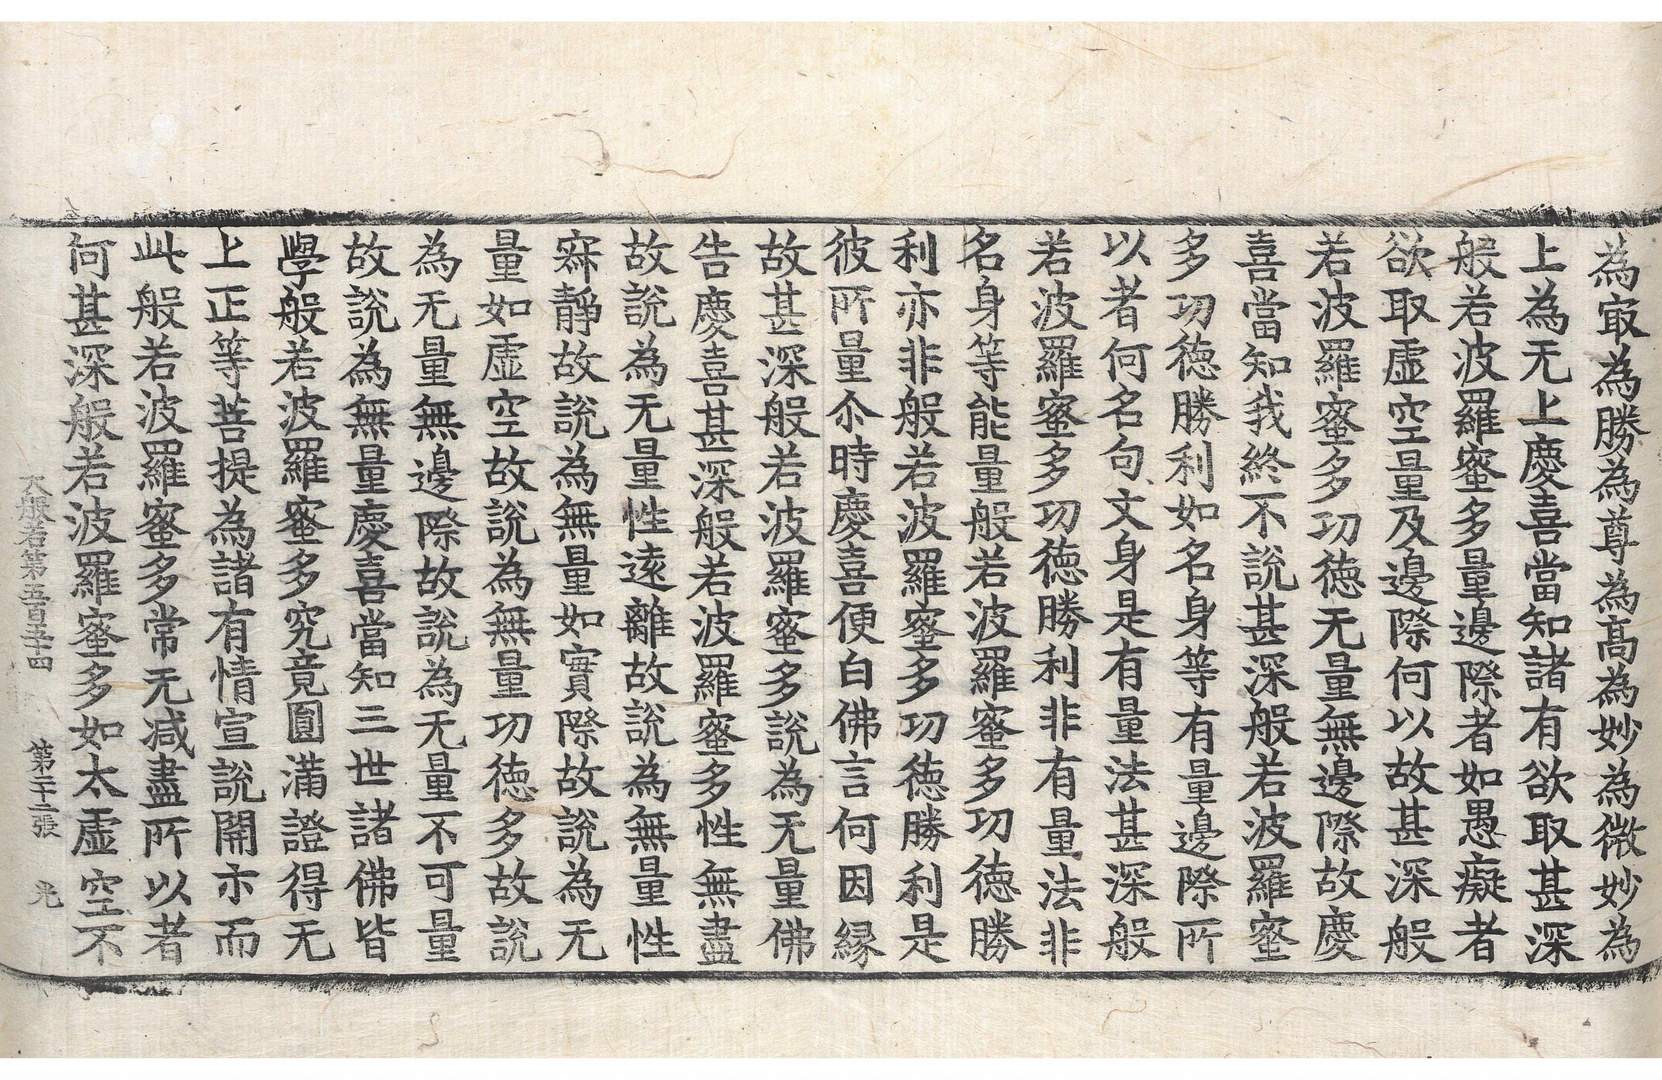 為㝡為勝為尊為高為妙為微妙為
上為无上慶喜當知諸有欲取甚深
般若波羅蜜多量邊際者如愚癡者
欲取虛空量及邊際何以故甚深般
若波羅蜜多功德无量無邊際故慶
喜當知我終不說甚深般若波羅蜜
多功德勝利如名身等有量邊際所
以者何名句文身是有量法甚深般
若波羅蜜多功德勝利非有量法非
名身等能量般若波羅蜜多功德勝
利亦非般若波羅蜜多功德勝利是
彼所量尒時慶喜便白佛言何因緣
故甚深般若波羅蜜多說為无量佛
告慶喜甚深般若波羅蜜多性無盡
故說為无量性遠離故說為無量性
寂靜故說為無量如實際故說為无
量如虛空故說為無量功德多故說
為无量無邊際故說為无量不可量
故說為無量慶喜當知三世諸佛皆
學般若波羅蜜多究竟圓滿證得无
上正等菩提為諸有情宣說開示而
此般若波羅蜜多常无減盡所以者
何甚深般若波羅蜜多如太虛空不
大般若第五百五十四　第二十二張　光